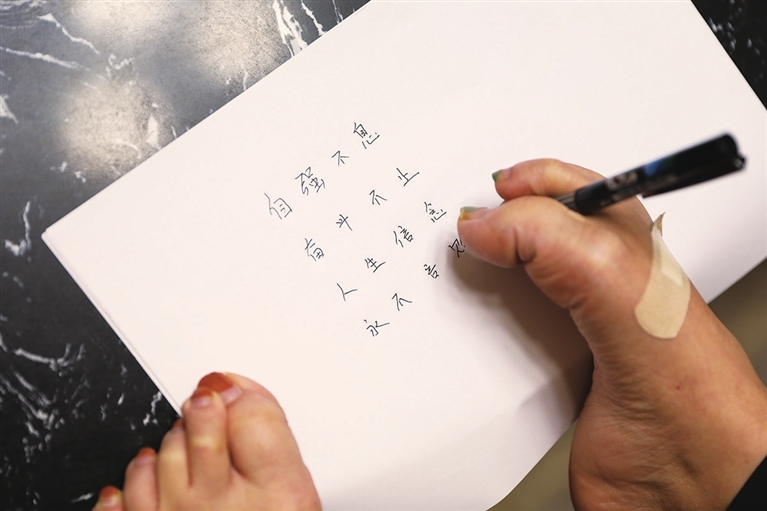 自强不息
奋斗不止
人生信念
永不言